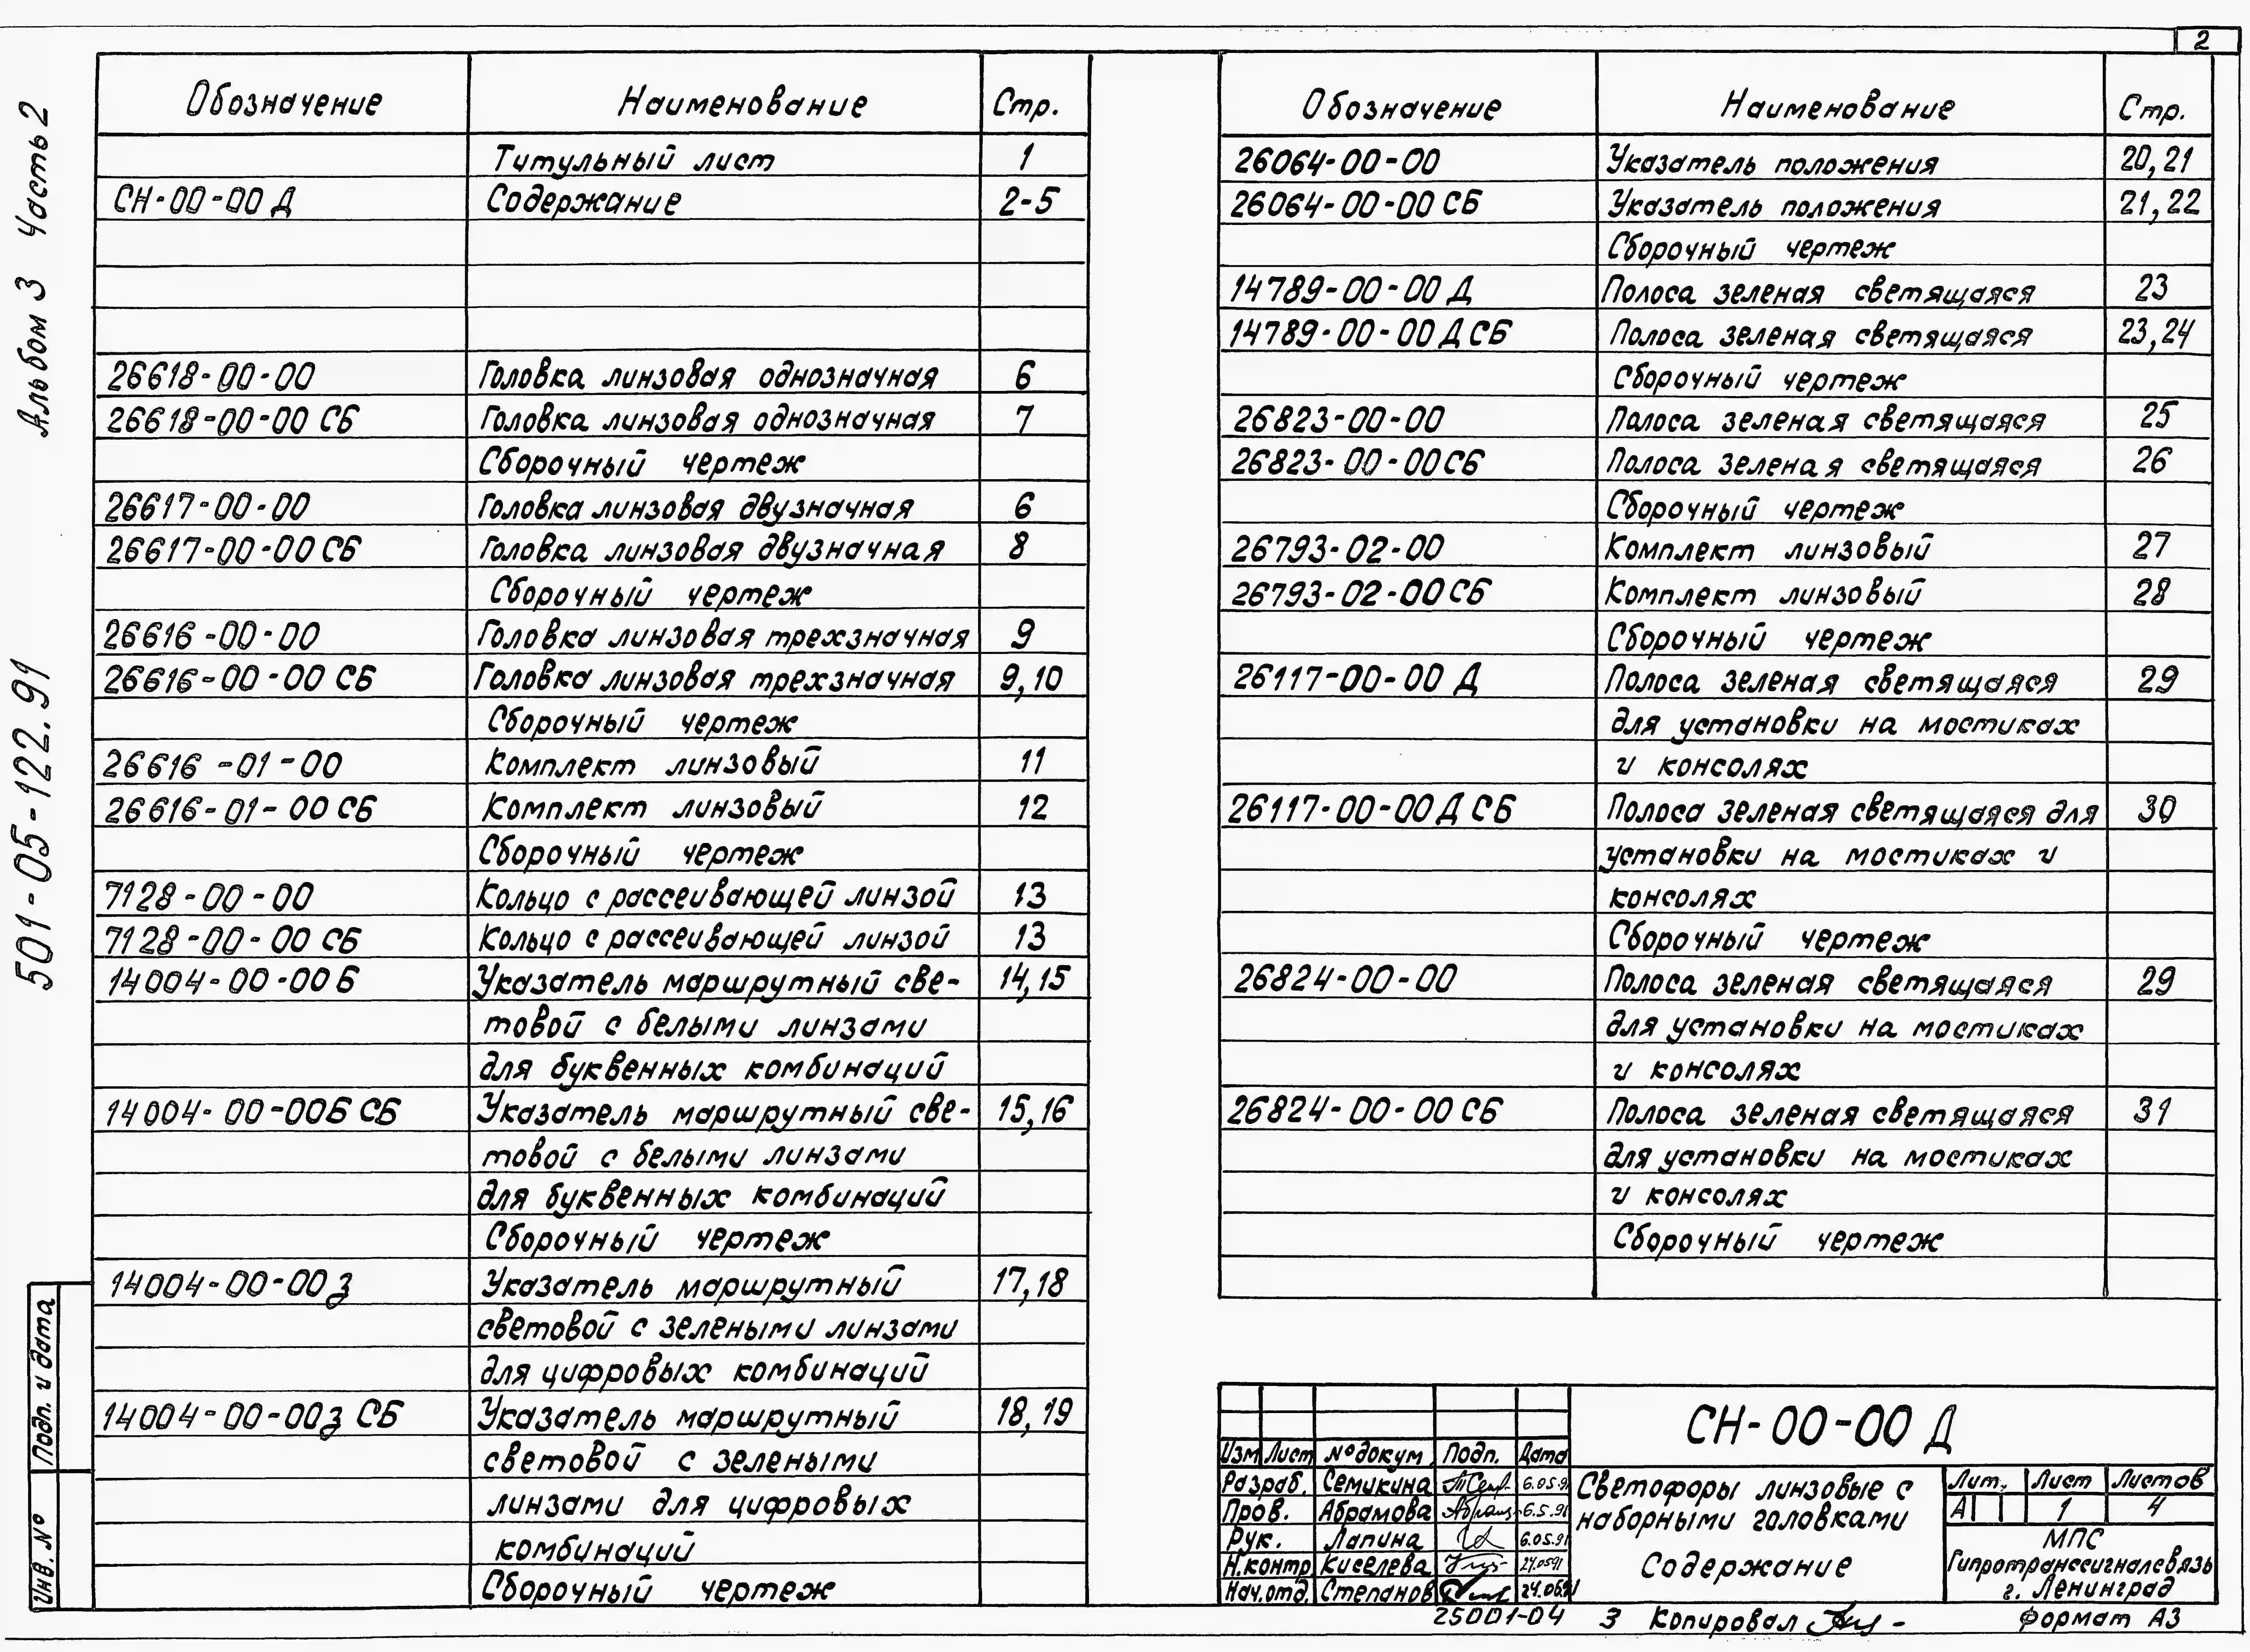 2
Альбом 3 Часть 2
501-05-122.91
Подп. и дата
Инв. №
Обозначение Наименование Стр.
Титульный лист 1
СН-00-00 Д Содержание 2-5
26618-00-00 Головка линзовая однозначная 6
26618-00-00 СБ Головка линзовая однозначная 7
Сборочный чертеж
26617-00-00 Головка линзовая двузначная 6
26617-00-00 СБ Головка линзовая двузначная 8
Сборочный чертеж
26616-00-00 Головка линзовая трехзначная 9
26616-00-00 СБ Головка линзовая трехзначная 9,10
Сборочный чертеж
26616-01-00 Комплект линзовый 11
26616-01-00 СБ Комплект линзовый 12
Сборочный чертеж
7128-00-00 Кольцо с рассеивающей линзой 13
7128-00-00 СБ Кольцо с рассеивающей линзой 13
14004-00-00Б Указатель маршрутный све- 14,15
товой с белыми линзами
для буквенных комбинаций
14004-00-00Б СБ Указатель маршрутный све- 15,16
товой с белыми линзами
для буквенных комбинаций
Сборочный чертеж
14004-00-00з Указатель маршрутный 17,18
световой с зелеными линзами
для цифровых комбинаций
14004-00-00з СБ Указатель маршрутный 18,19
световой с зелеными
линзами для цифровых
комбинаций
Сборочный чертеж
Обозначение Наименование Стр.
26064-00-00 Указатель положения 20,21
26064-00-00 СБ Указатель положения 21,22
Сборочный чертеж
14789-00-00 Д Полоса зеленая светящаяся 23
14789-00-00 Д СБ Полоса зеленая светящаяся 23,24
Сборочный чертеж
26823-00-00 Полоса зеленая светящаяся 25
26823-00-00СБ Полоса зеленая светящаяся 26
Сборочный чертеж
26793-02-00 Комплект линзовый 27
26793-02-00СБ Комплект линзовый 28
Сборочный чертеж
26117-00-00 Д Полоса зеленая светящаяся 29
для установки на мостиках
и консолях
26117-00-00 Д СБ Полоса зеленая светящаяся для 30
установки на мостиках и
консолях
Сборочный чертеж
26824-00-00 Полоса зеленая светящаяся 29
для установки на мостиках
и консолях
26824-00-00 СБ Полоса зеленая светящаяся 31
для установки на мостиках
и консолях
Сборочный чертеж
СН-00-00 Д
Изм Лист № докум. Подп. Дата
Разраб. Семикина 6.05.91
Пров. Абрамова 6.5.91
Рук. Лапина 6.05.91
Н.контр Киселева 24.0591
Нач.отд. Степанов 24.05.91
Светофоры линзовые с
наборными головками
Содержание
Лит. Лист Листов
А 1 4
МПС
Гипротранссигналсвязь
г. Ленинград
25001-04 3 Копировал Формат А3